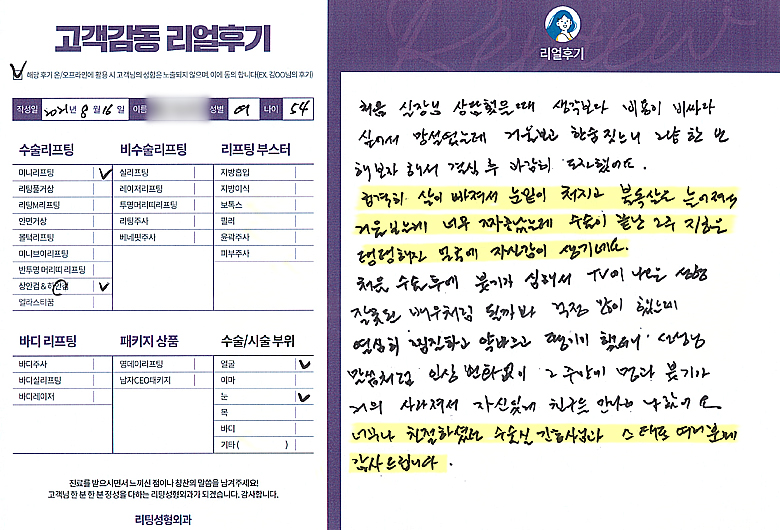 고객감동 리얼후기
해당 후기 온/오프라인에 활용 시 고객님의 성함은 노출되지 않으며, 이에 동의 합니다(EX. 김OO님의 후기)
작성일 2021년 8월 16일 이름 성별 여 나이 54
수술리프팅
미니리프팅
리팅풀거상
리팅M리프팅
안면거상
볼턱리프팅
미니브이리프팅
반투명 머리띠 리프팅
상안검 & 하안검
엘라스티꿈
비수술리프팅
실리프팅
레이저리프팅
투명머리띠리프팅
리팅주사
베네핏주사
리프팅 부스터
지방흡입
지방이식
보톡스
필러
윤곽주사
피부주사
바디 리프팅
바디주사
바디실리프팅
바디레이저
패키지 상품
엽데이리프팅
남자CEO패키지
수술/시술 부위
얼굴
이마
눈
목
바디
기타 ( )
진료를 받으시면서 느끼신 점이나 칭찬의 말씀을 남겨주세요!
고객님 한 분 한 분 정성을 다하는 리팅성형외과가 되겠습니다. 감사합니다.
리팅성형외과
Review
리얼후기
처음 실장님 상담했을때 생각보다 비용이 비싸다
싶어서 망설였는데 거울보고 한숨짓느니 그냥 한 번
해보자 해서 결심 후 과감히 도전했어요.
급격히 살이 빠져서 눈밑이 처지고 볼독살도 늘어져
거울보는데 너무 짜증났는데 수술이 끝난 2주 지난
탱탱해진 모습에 자신감이 생기네요.
처음 수술후에 붓기가 심해서 TV에 나오는 성형
잘못된 배우처럼 될까봐 걱정 많이 했는데
열심히 찜질하고 약바르고 땡기미 했더니 선생님
말씀처럼 인상 변화없이 2주만에 멍과 붓기가
거의 사라져서 자신있게 친구들 만나고 다녔어요
너무나 친절하셨던 수술실 간호사님과 스탭들 여러분께
감사드립니다.